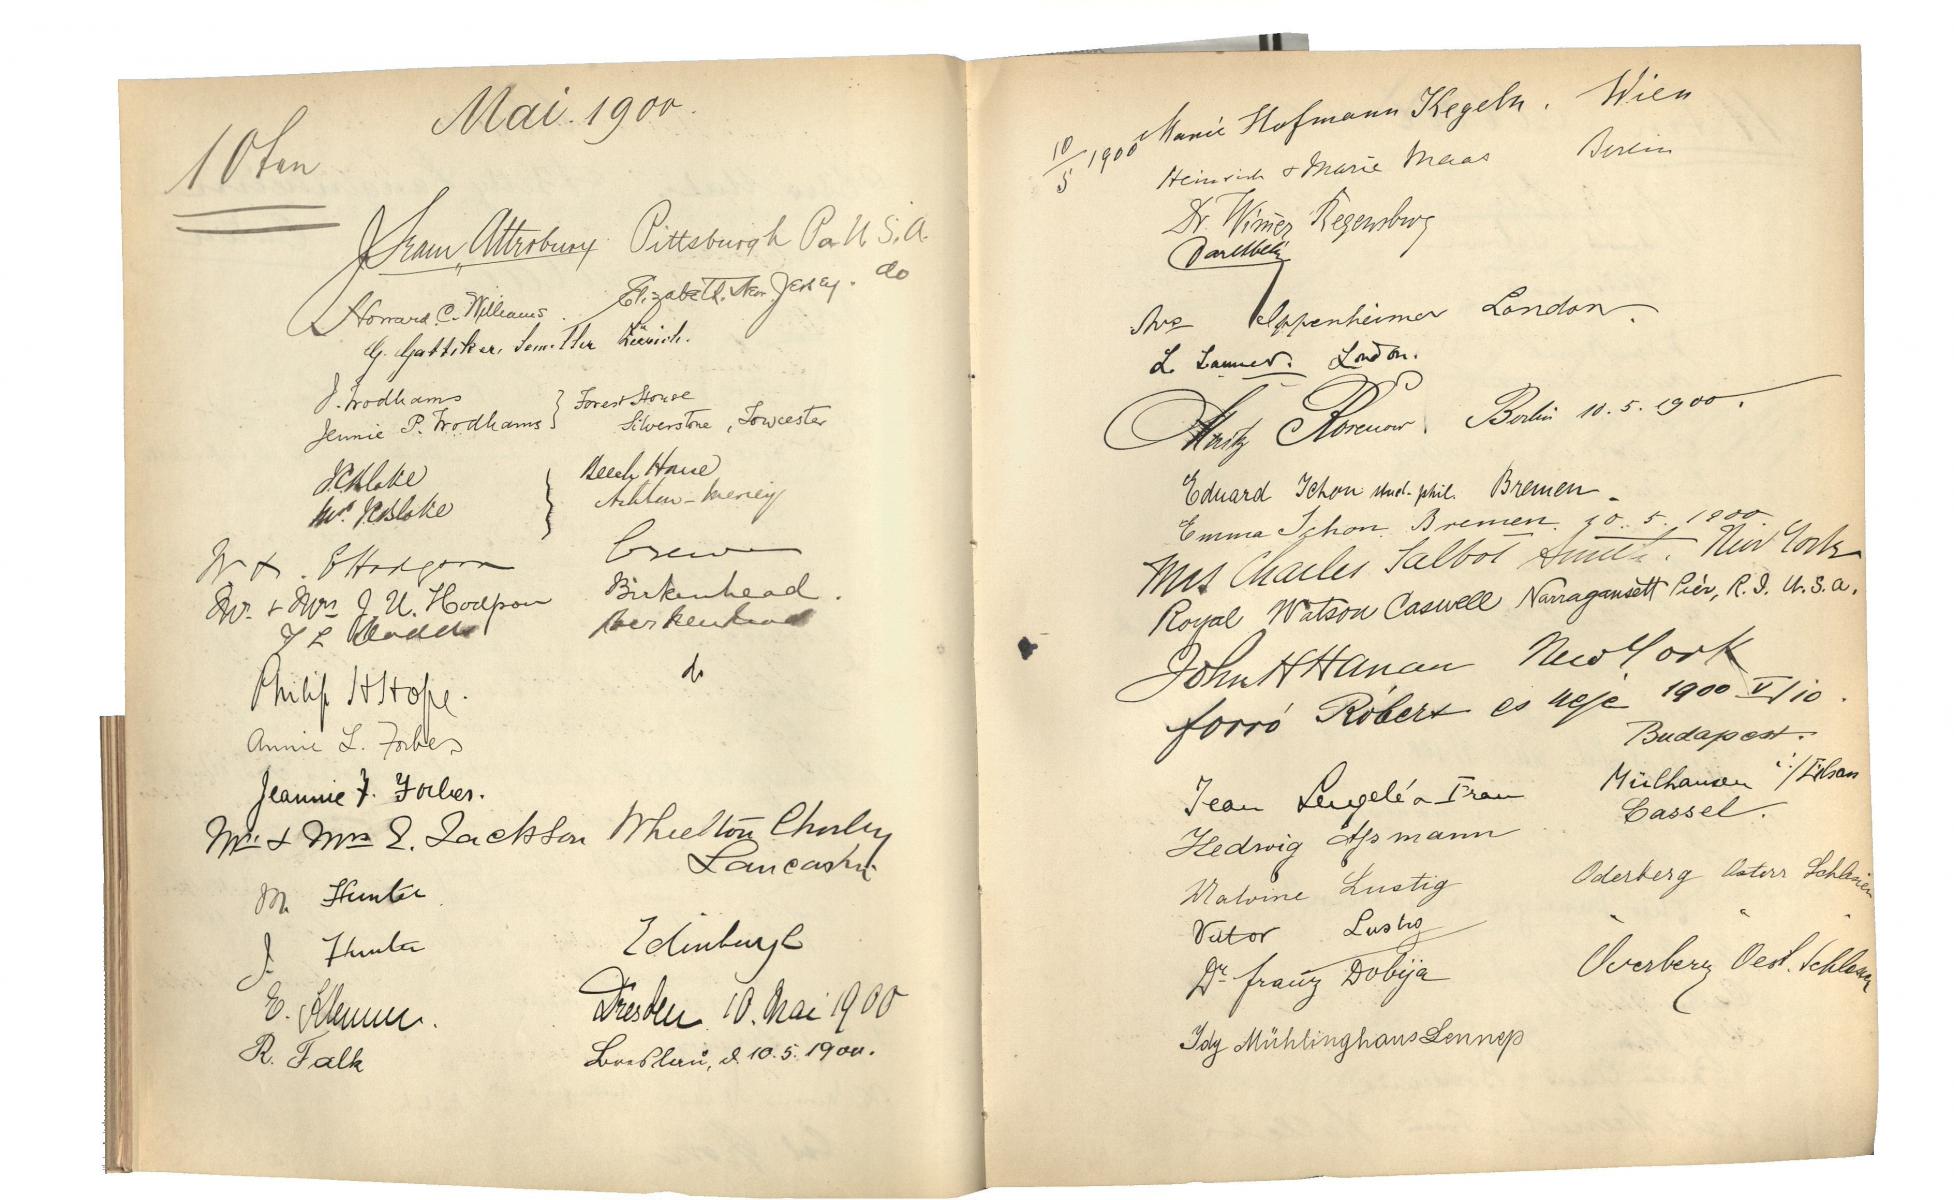 Mai. 1900.
10ten
Attrobury Pittsburgh Pa U.S.A.
Howard C. Williams. Elizabeth. New Jersey. do
G. Gattiker, Zürich.
J. Trodhams } Forest House
Jennie P. Trodhams } Silverstone, Towcester
J C Blake } Beech House
Mrs J C Blake
Crewe
Mr. & Mrs J. U. Hodgson Birkenhead.
Birkenhead
Philip H Hope. do
Annie L. Forbes
Jeannie F. Forbes.
Mr. & Mrs E. Jackson Wheelton Chorley
Lancashire
M Hunter
J. Hunter Edinburgh
E. Klemm. Dresden 10. Mai 1900
R. Falk 10.5.1900.
10/5 1900 Marie Hofmann Kegeln. Wien
Heinrich & Marie Maas Berlin
Dr. Wimer Regensburg
Mrs Oppenheimer London.
L. London.
Moritz Berlin 10.5.1900.
Eduard Ichon stud. phil. Bremen.
Emma Ichon. Bremen. 10.5.1900.
Mrs Charles Talbot Smith. New York
Royal Watson Caswell Narragansett Pier, R.I. U.S.A.
John H Hanan New York
forró Róbert es neje 1900 V/10.
Budapest.
Jean Lengelé & Frau Mülhausen i/Elsass
Hedwig Aßmann Cassel.
Malvine Lustig Oderberg Österr Schlesien
Victor Lustig " " "
Dr. franz Dobija Oest. Schlesien
Idy Mühlinghaus Lennep